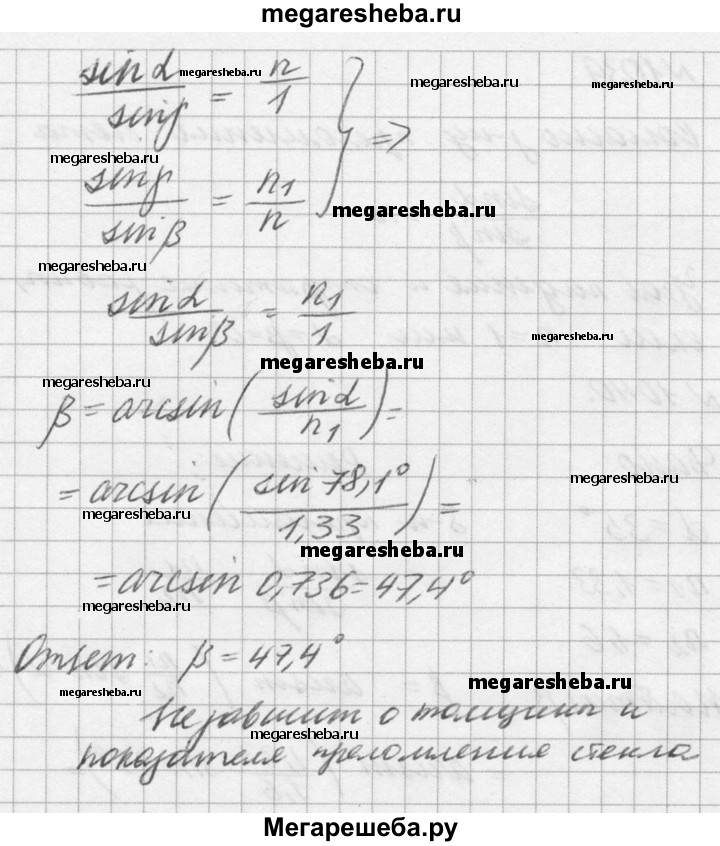 megaresheba.ru
sin α / sin γ = n / 1
megaresheba.ru
megaresheba.ru
megaresheba.ru
} =>
megaresheba.ru
sin γ / sin β = n1 / n
megaresheba.ru
megaresheba.ru
sin α / sin β = n1 / 1
megaresheba.ru
megaresheba.ru
megaresheba.ru
β = arcsin ( sin α / n1 ) =
= arcsin ( sin 78,1° / 1,33 ) =
megaresheba.ru
megaresheba.ru
megaresheba.ru
= arcsin 0,736 = 47,4°
megaresheba.ru
Ответ: β = 47,4°
megaresheba.ru
megaresheba.ru
Не зависит о толщины и
megaresheba.ru
показателя преломления стекла
Мегарешеба.ру